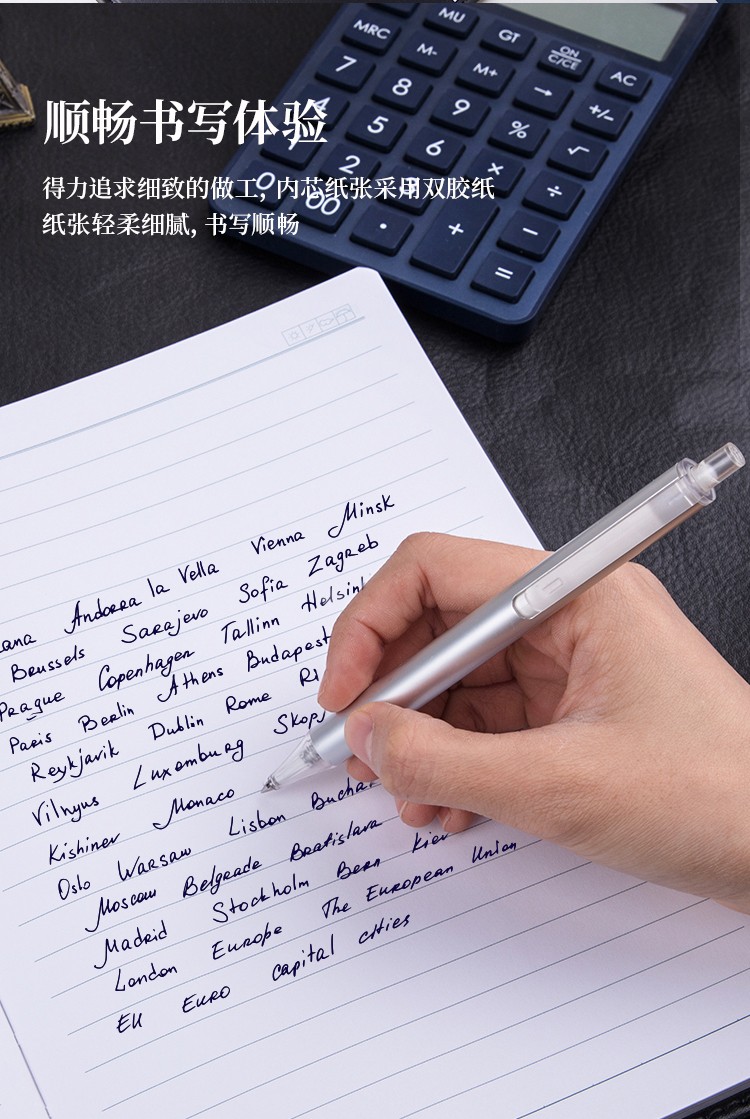 MU
MRC
GT
ON
C/CE
M-
M+
AC
7
8
9
→
+/-
4
5
6
%
√
2
×
÷
0
00
·
+
−
=
顺畅书写体验
得力追求细致的做工, 内芯纸张采用双胶纸
纸张轻柔细腻, 书写顺畅
Andorra la Vella Vienna Minsk
Brussels Sarajevo Sofia Zagreb
Prague Copenhagen Tallinn
Paris Berlin Athens Budapest
Reykjavik Dublin Rome
Vilnyus Luxemburg
Kishinev Monaco
Oslo Warsaw Lisbon
Moscow Belgrade Bratislava
Madrid Stockholm Bern Kiev
London Europe The European Union
EU Euro capital cities